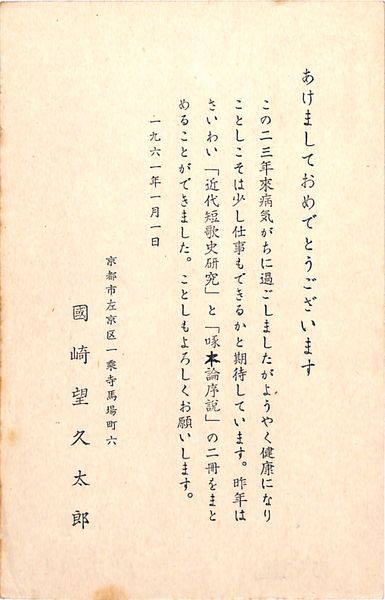 あけましておめでとうございます
この二三年來病気がちに過ごしましたがようやく健康になり
ことしこそは少し仕事もできるかと期待しています。昨年は
さいわい「近代短歌史研究」と「啄本論序説」の二冊をまと
めることができました。ことしもよろしくお願いします。
一九六一年一月一日
京都市左京区一乗寺馬場町六
國崎望久太郎